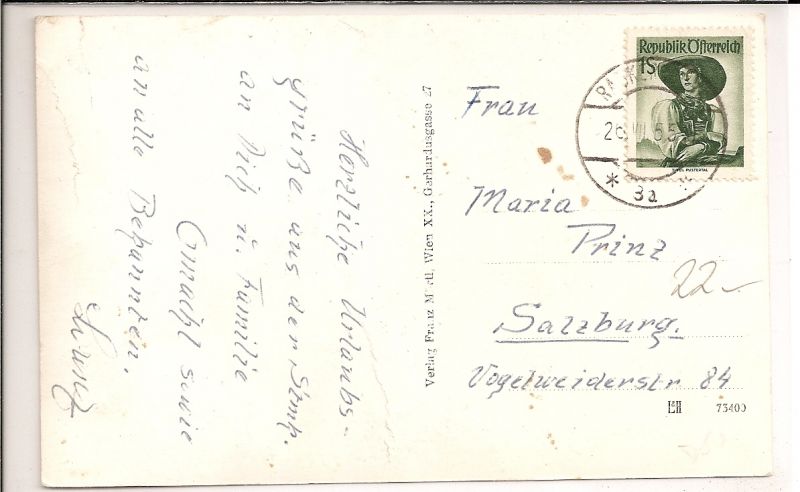 Herzliche Urlaubs-
grüße aus der Stmk.
an Dich u. Familie
sowie
an alle Bekannten.
Verlag Franz Mörtl, Wien XX., Gerhardusgasse 27
Republik Österreich
1S
TIROL PUSTERTAL
26. VII. 55
* 3a *
Frau
Maria
Prinz
Salzburg.
Vogelweiderstr 84
22-
73400